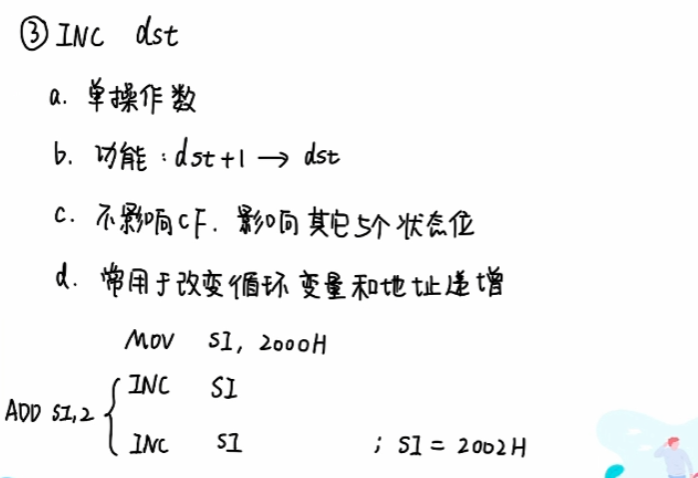 ③ INC dst
a. 单操作数
b. 功能:dst+1 → dst
c. 不影响CF. 影响其它5个状态位
d. 常用于改变循环变量和地址递增
MOV SI, 2000H
INC SI
ADD SI,2
INC SI ; SI = 2002H